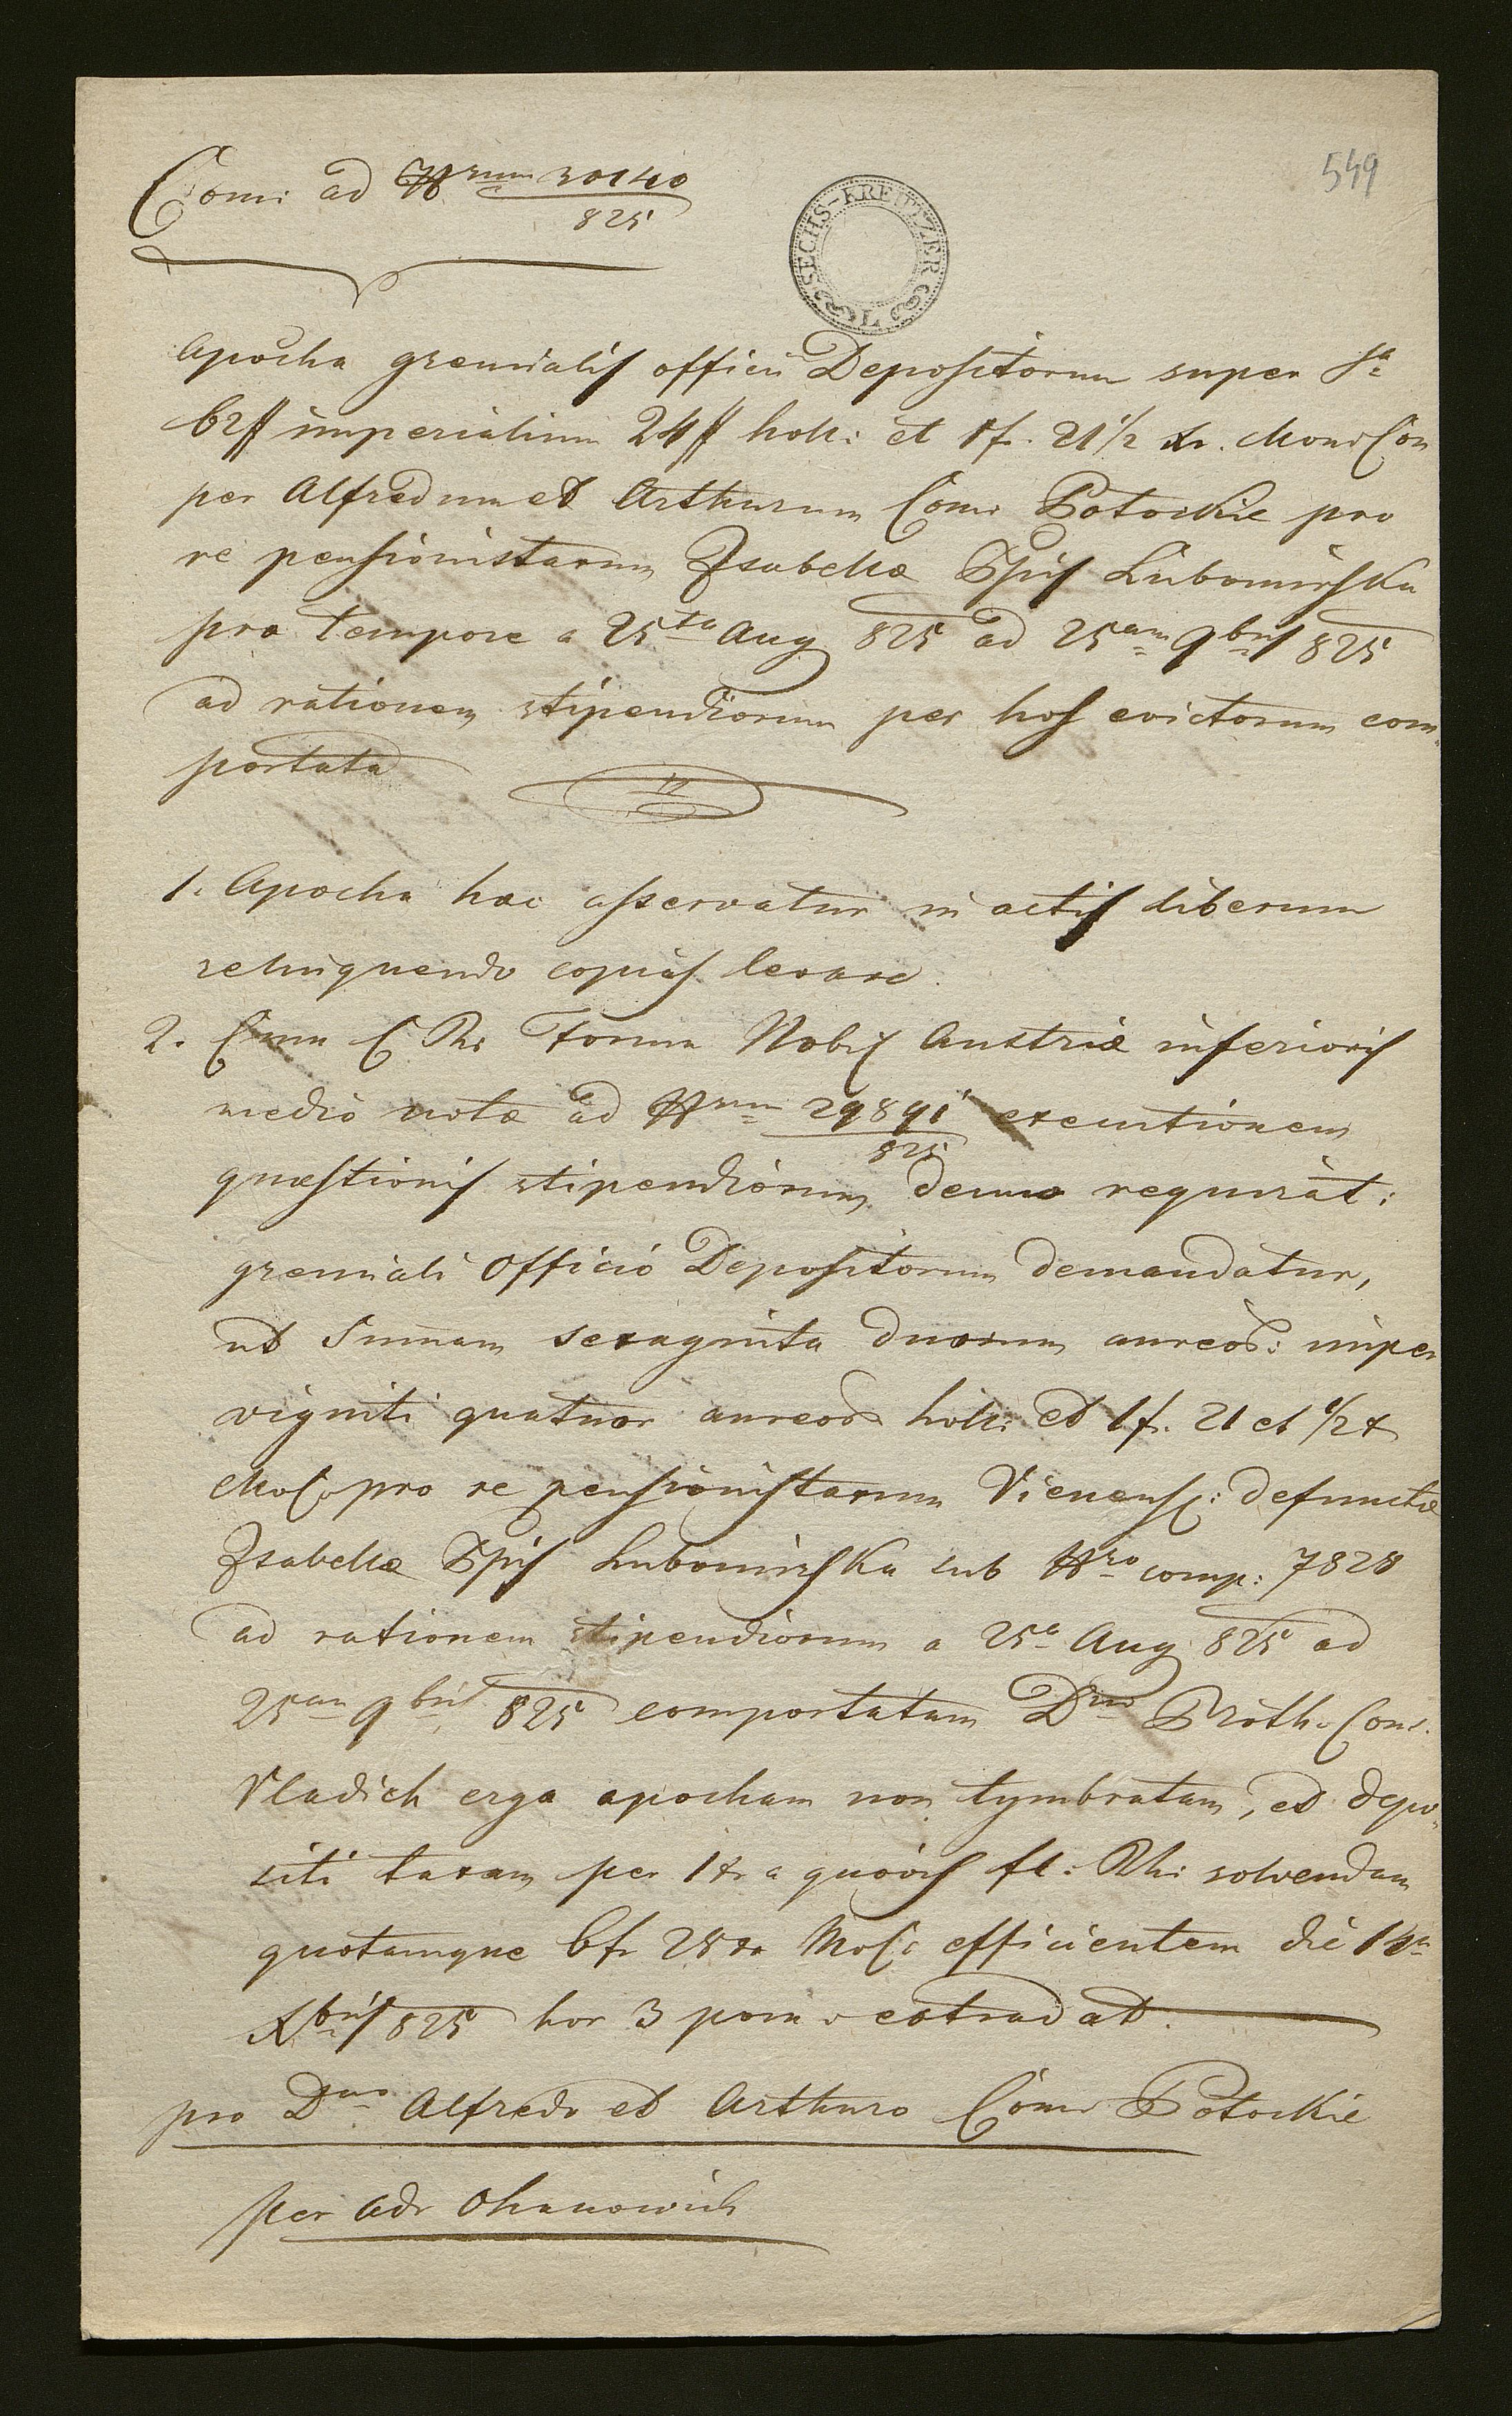 549
Comi ad Nrum 30140
825
SECHS-KREUTZER
L
Apocha gremialis officii Depositorum super Sa
62# imperialium 24# holl: et 1f. 21 1/2 xr. Mon: Con
per Alfredum et Arthurum Com: Potockie pro
re pensionistarum Isabellæ Ppis Lubomirska
pro tempore a 25ta Aug 825 ad 25am 9bris 825
ad rationem stipendiorum per hos evictorum com„
portata
1. Apocha hæc asservatur in actis liberum
relinquendo copias levare.
2. Cum C R: Forum Nob: Austriæ inferioris
medio notæ ad Nrum 29891 executionem
825
quæstionis stipendiorum denuo requirat:
gremiali Officio Depositorum demandatur,
ut Summam sexaginta duorum aureor: imper
viginti quatuor aureor: holl: et 1f. 21 et 1/2 x
MoCo pro re pensionistarum Vienens: defunctæ
Isabellæ Ppis Lubomirska sub Nro comp: 7828
ad rationem stipendiorum a 25a Aug 825 ad
25am 9bris 825 comportatam Dno Proth. Cons.
Vladich erga apocham non tymbratam, et depo„
siti taxam per 1 xr a quovis fl: Rh: solvendam
quotamque 6f. 28 xr MoCo efficientem die 14a
Xbris 825 hor 3 pom: extradat.
pro Dno Alfredo et Arthuro Com: Potockie
per Adv Ohanowich